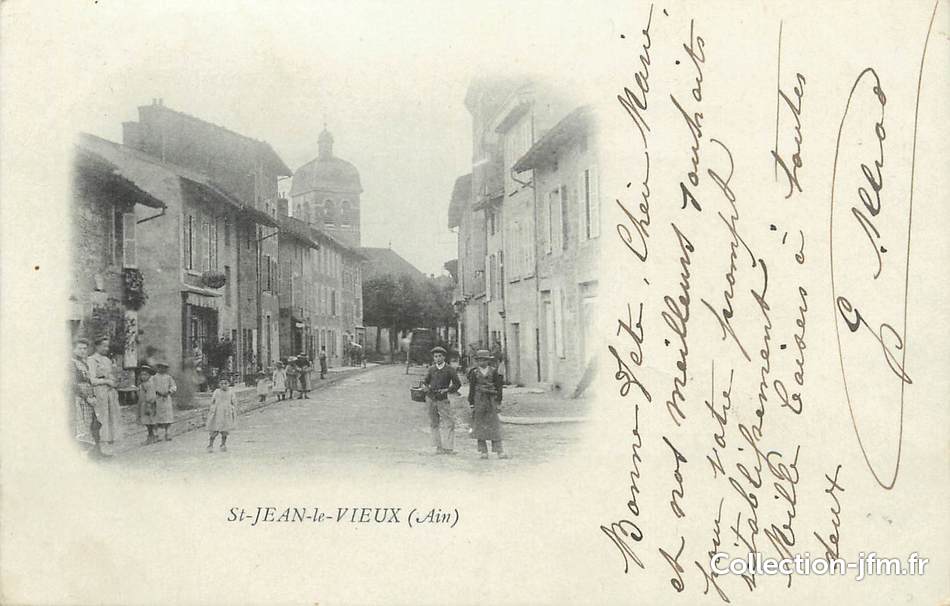 St-JEAN-le-VIEUX (Ain)
Bonne fête, Chère Marie,
et nos meilleurs souhaits
pour votre prompt
rétablissement
Mille baisers à toutes
deux
G
Collection-jfm.fr